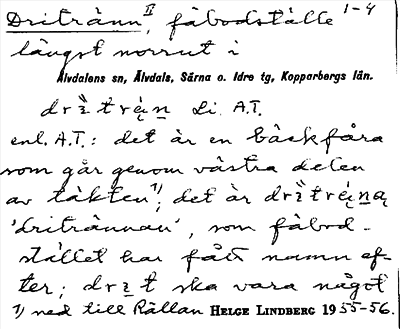 Dritränn II, fäbodställe 1-4
längst norrut i
Älvdalens sn, Älvdals, Särna o. Idre tg, Kopparbergs län.
Li. A.T.
enl. A.T.: det är en bäckfåra
som går genom västra delen
av täkten 1); det är
'dritrännan', som fäbod-
stället har fått namn ef-
ter; ska vara något
1) ned till Rällan HELGE LINDBERG 1955-56.